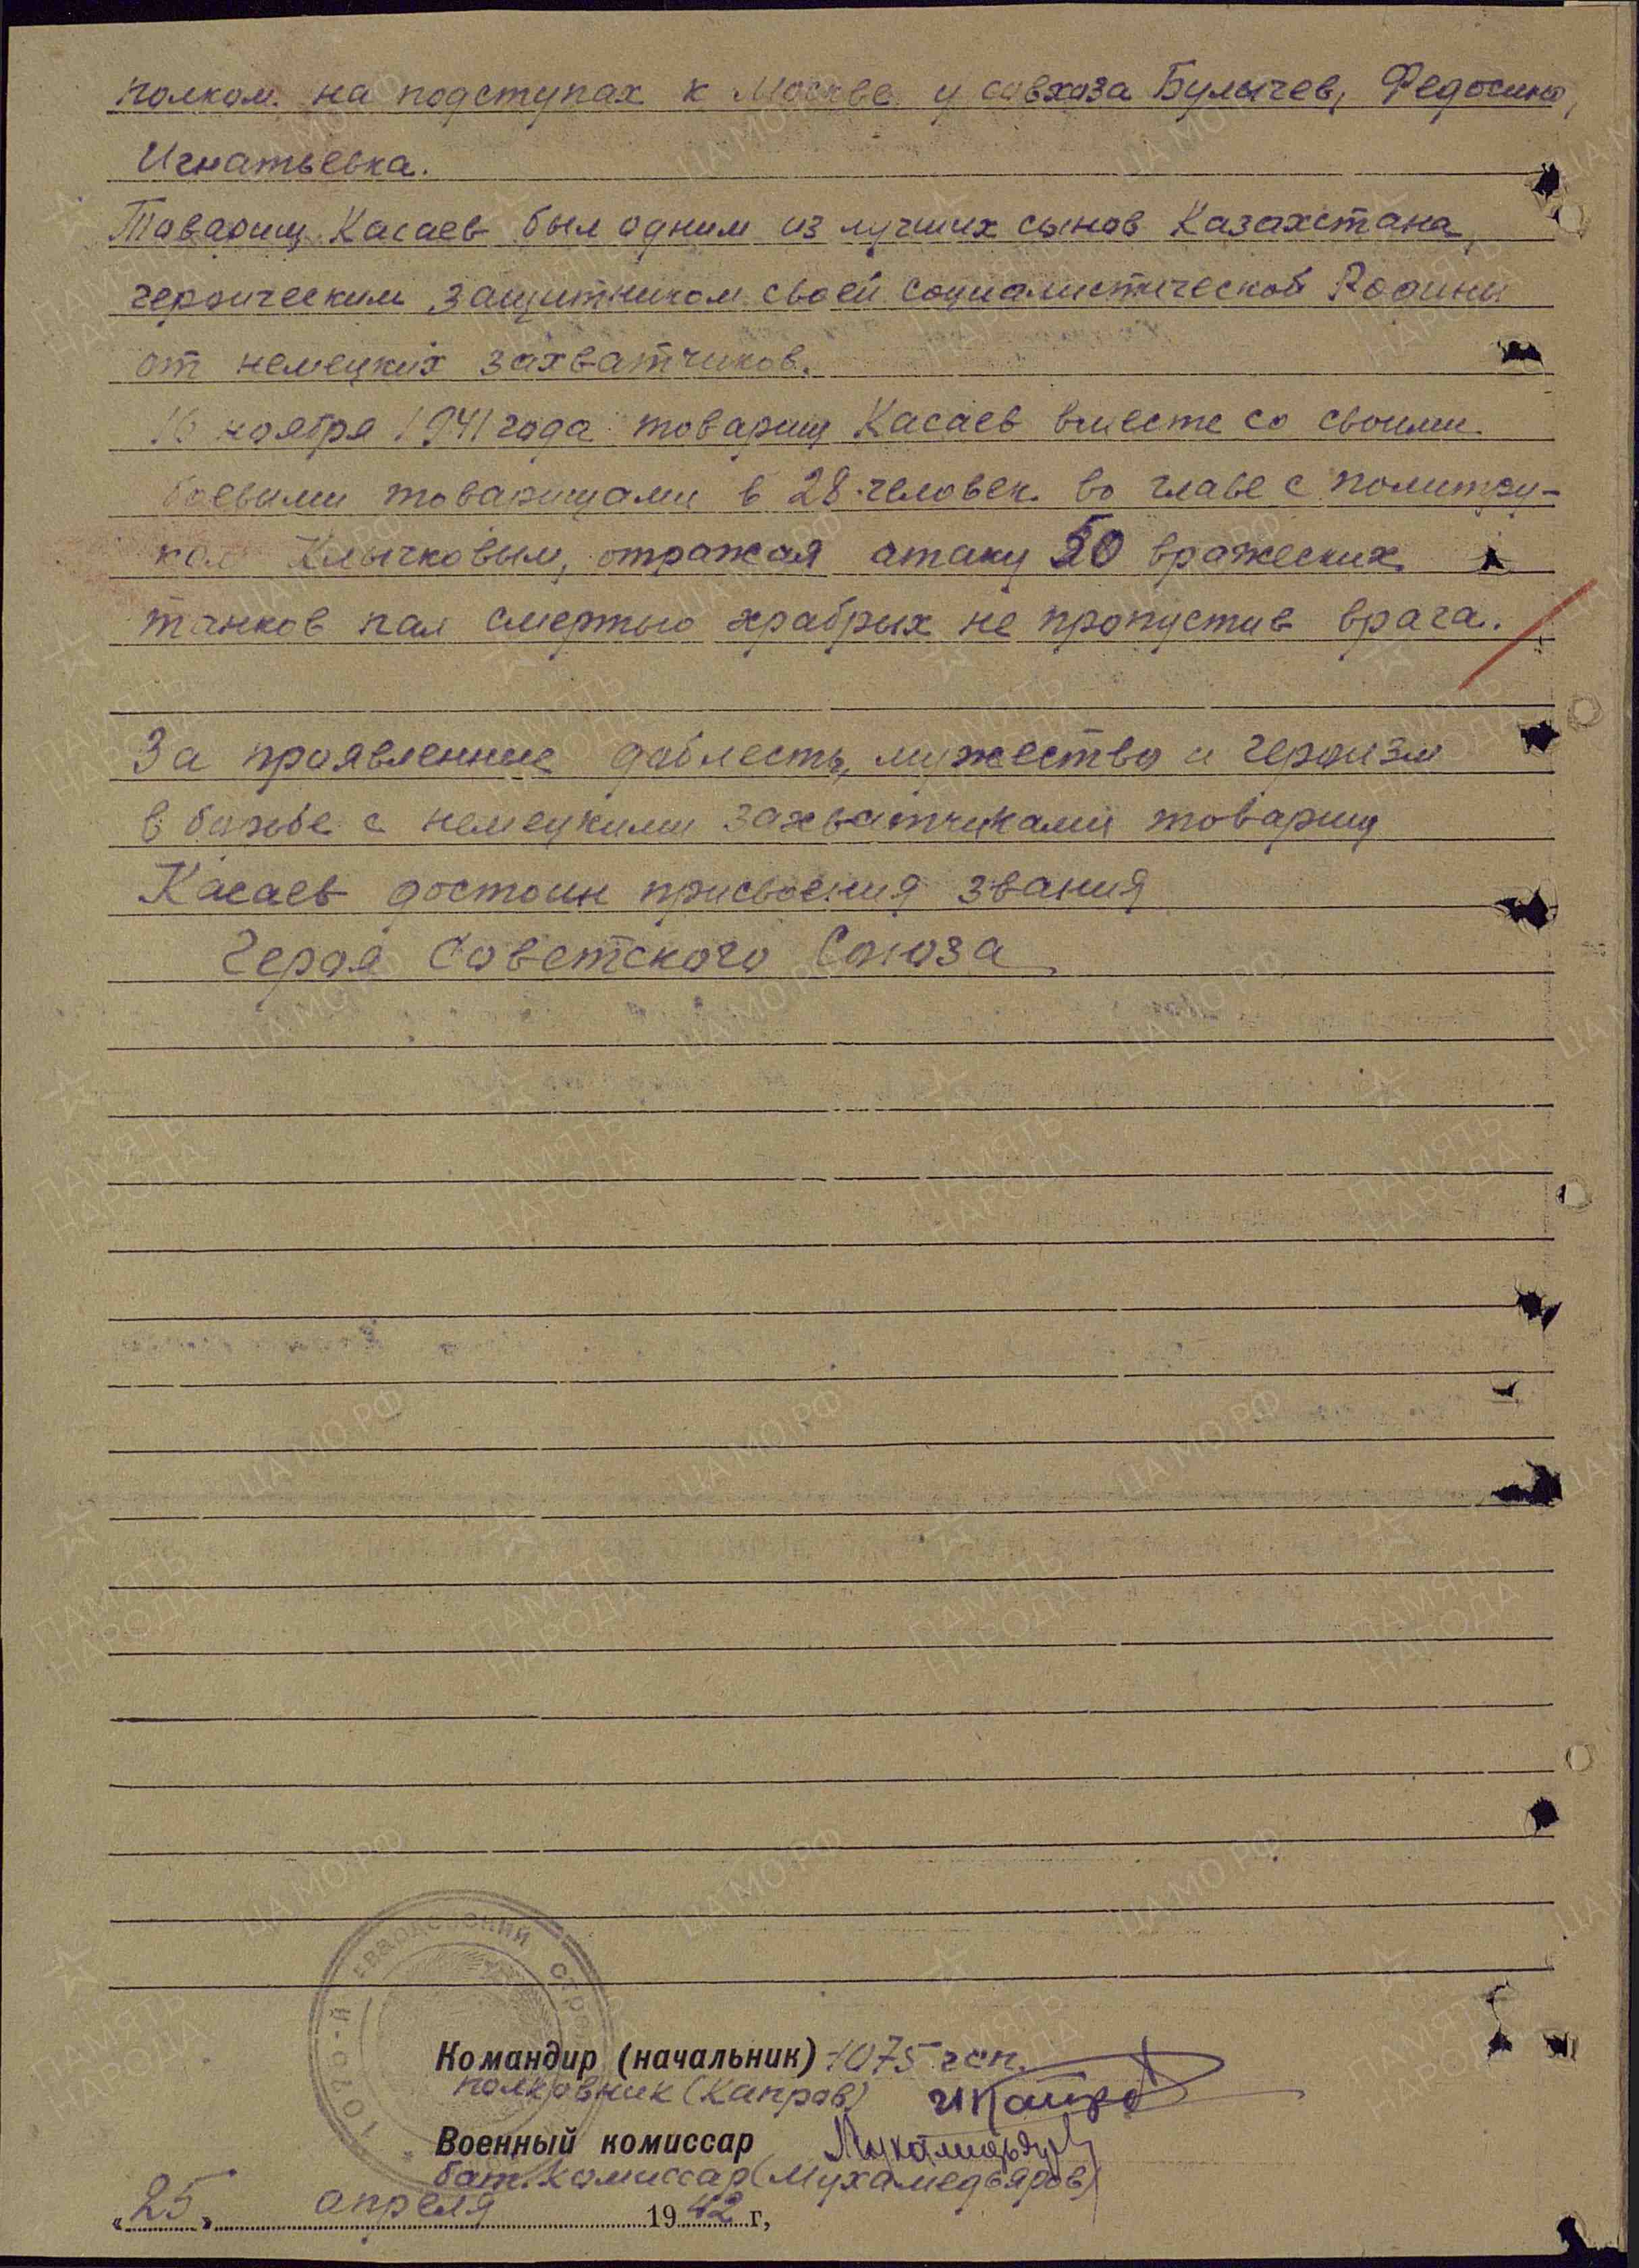 полком на подступах к Москве у совхоза Булычев, Федосино,
Игнатьевка.
Товарищ Касаев был одним из лучших сынов Казахстана,
героическим защитником своей социалистической Родины
от немецких захватчиков.
16 ноября 1941 года товарищ Касаев вместе со своими
боевыми товарищами в 28 человек во главе с политру-
ком Клычковым, отражая атаку 50 вражеских
танков пал смертью храбрых не пропустив врага.
За проявленные доблесть, мужество и героизм
в борьбе с немецкими захватчиками товарищ
Касаев достоин присвоения звания
Героя Советского Союза
Командир (начальник) 1075 гсп.
полковник (Капров) ИКапров
Военный комиссар Мухамедьяров
бат. комиссар (Мухамедьяров)
„25" апреля 1942 г,
ПАМЯТЬ НАРОДА
ЦА МО РФ